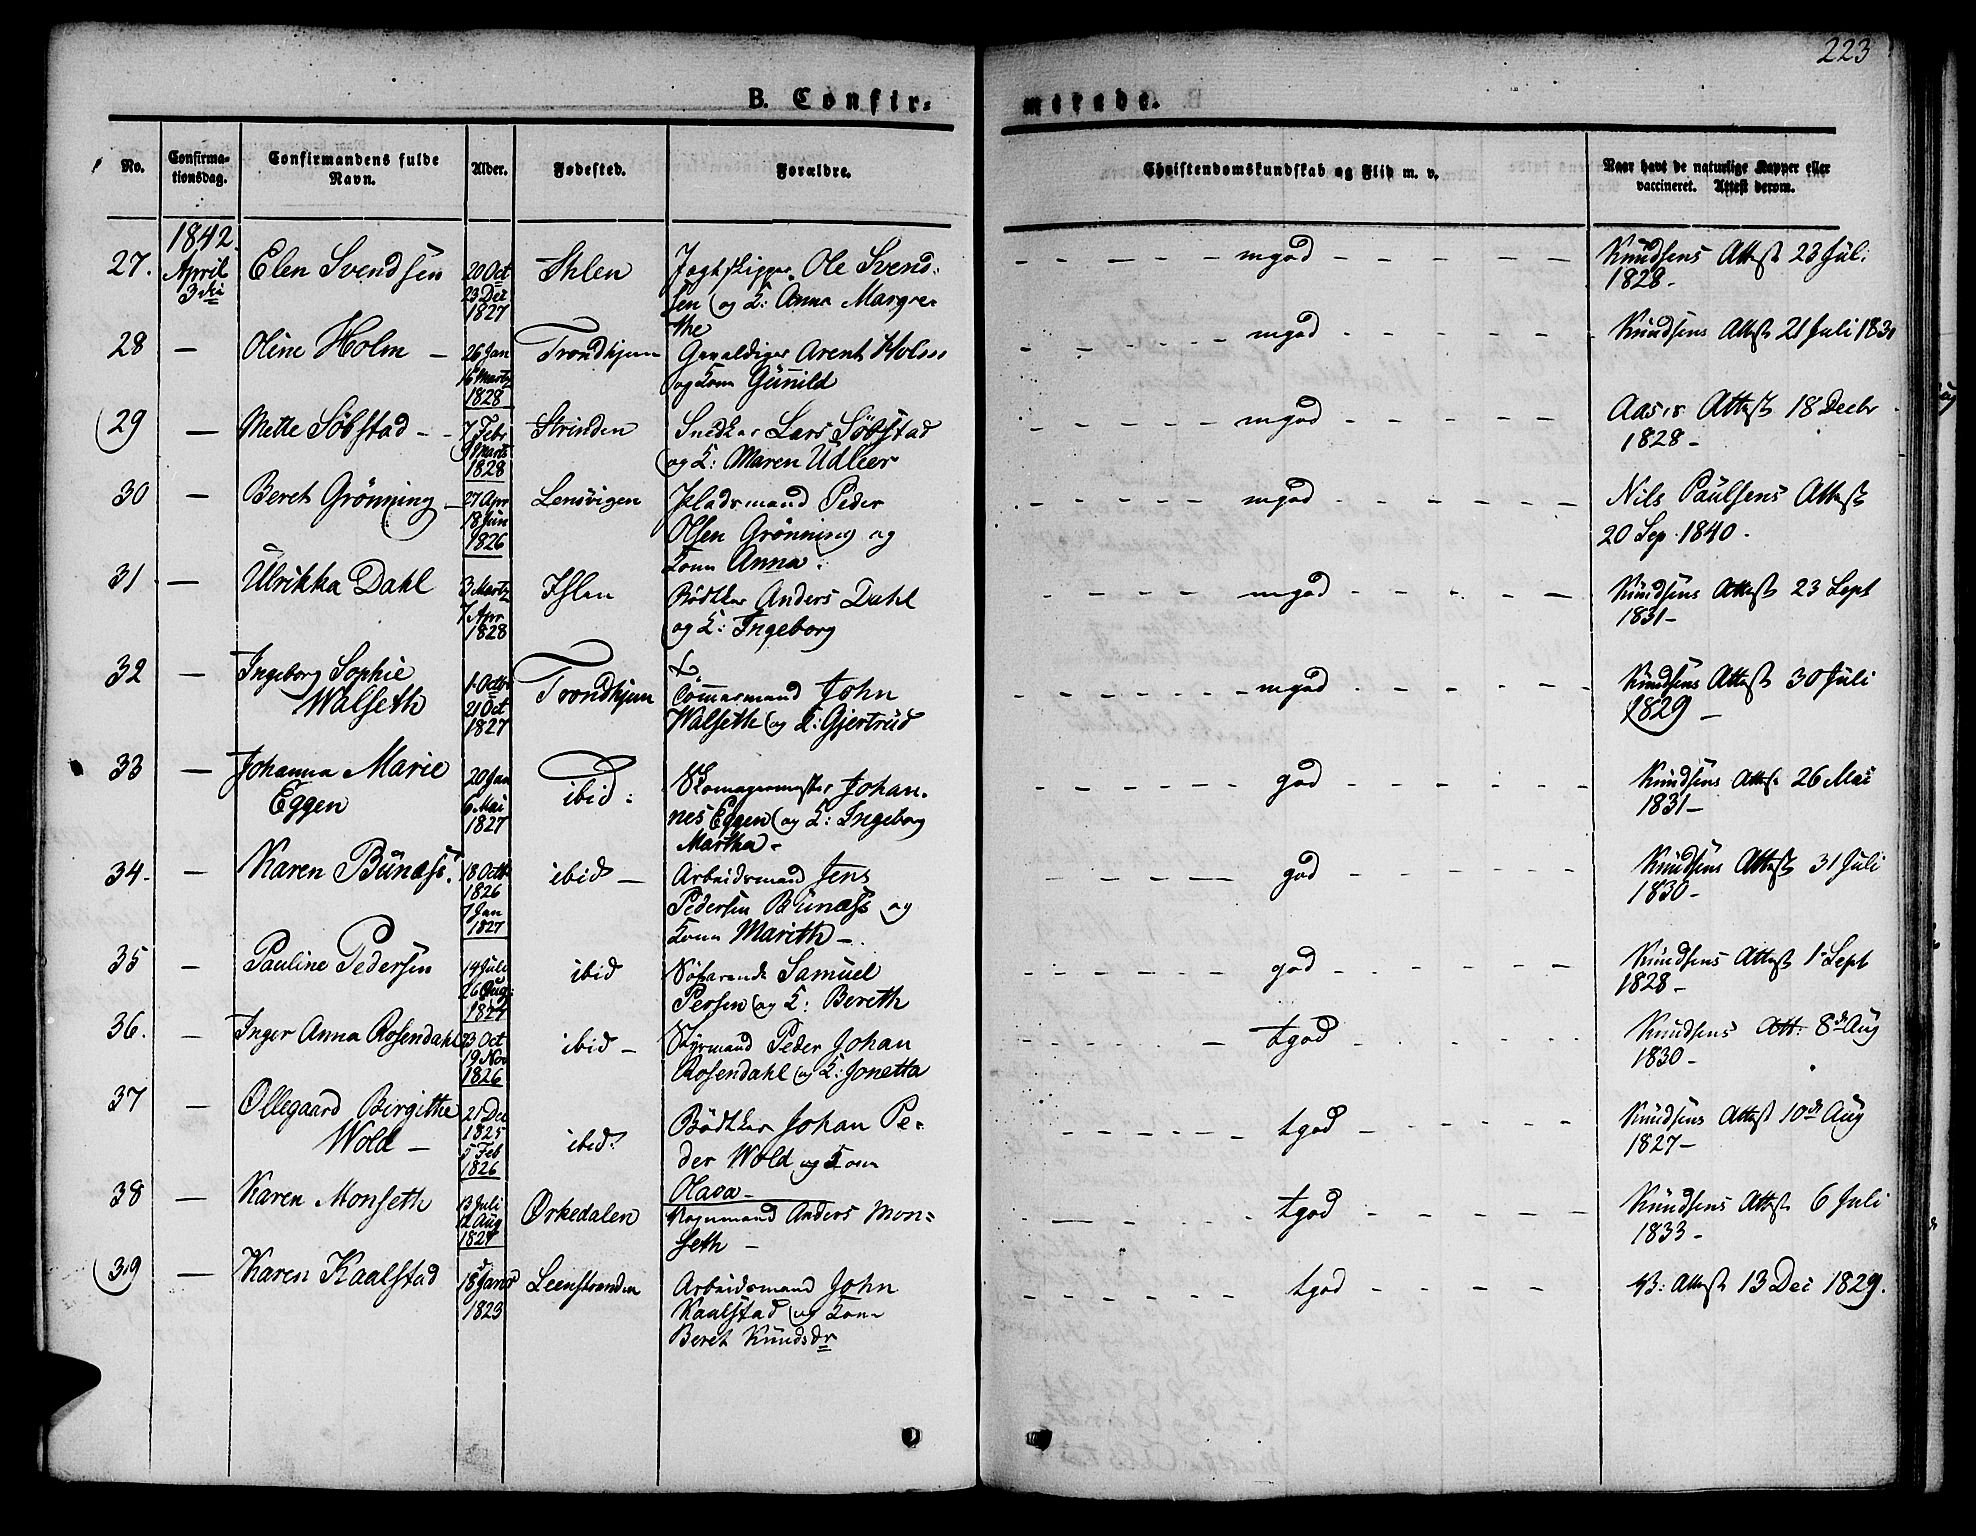 223
B. Confir-
merede.
No.
Confirma-
tionsdag.
Confirmandens fulde
Navn.
Alder.
Fødested.
Forældre.
Christendomskundskab og Flid m. v.
Naar havt de naturlige Kopper eller
vaccineret. Attest derom.
1842.
27. April 3die Elen Svendsen 20 Oct 23 Dec 1827 Ihlen
Jagtskipper Ole Svend-
sen og K: Anna Margre-
the
mgod
Knudsens Attest 23 Juli
1828-
28 — Oline Holm — 26 Jan 16 Marts 1828 Trondhjem
Gevaldiger Arent Holm
og Kone Gunild
mgod
Knudsens Attest 21 Juli 1831
29 — Mette Söbstad - - 7 Febr 9 Marts 1828 Strinden
Snedker Lars Söbstad
og K: Maren Udleer
mgod
Attest 18 Decbr
1828-
30 — Beret Grönning — 27 Apr 18 Jun 1826 Lensvigen
Pladsmand Peder
Olsen Grönning og
Kone Anna.
mgod
Nils Paulsens Attest
20 Sep. 1840.
31. — Ulrikka Dahl 3 Marts 7 Apr 1828 Ihlen
Bödtker Anders Dahl
og K: Ingeborg
mgod
Knudsens Attest 23 Sept
1831-
32 — Ingeborg Sophie
Walseth 1. Octbr 21 Oct 1827 Trondhjem
Tömmermand John
Walseth og K: Gjertrud
mgod
Knudsens Attest 30 Juli
1829 -
33 — Johanna Marie
Eggen 20 Jan 6 Mai 1827 ibid:
Skomagermester Johan-
nes Eggen og K: Ingeborg
Martha-
god
Knudsens Attest 26 Mai
1831-
34. — Karen Bunæs. 18 Octb 1826 7 Jan 1827 ibid —
Arbeidsmand Jens
Pedersen Bunæs og
Kone Marith-.
god
Knudsens Attest 31 Juli
1830-
35 — Pauline Pedersen 14 Juli 26 Aug: 1827 ibid
Söfarende Samuel
Persen og K: Bereth
god
Knudsens Attest 1. Sept
1828-
36. — Inger Anna Rosendahl 23 Oct 19 Nov 1826 ibid —
Styrmand Peder Johan
Rosendahl og K: Jonetta
tgod
Knudsens Att: 8de Aug
1830-
37 — Ollegaard Birgitthe
Wold — 21 Dec 1825 5 Feb 1826 ibid.
Bödtker Johan Pe-
der Wold og Kone
Olava-
tgod
Knudsens Attest 10de Aug
1827-
38 — Karen Monseth 13 Juli 12 Aug 1827 Ørkedalen
Vognmand Anders Mon-
seth —
tgod
Knudsens Attest 6 Juli
1833-
39 — Karen Kaalstad 18 Janr 1823 Leenstranden
Arbeidsmand John
Kaalstad og Kone
Beret Knudsdr
tgod
Attest 13 Dec 1829.